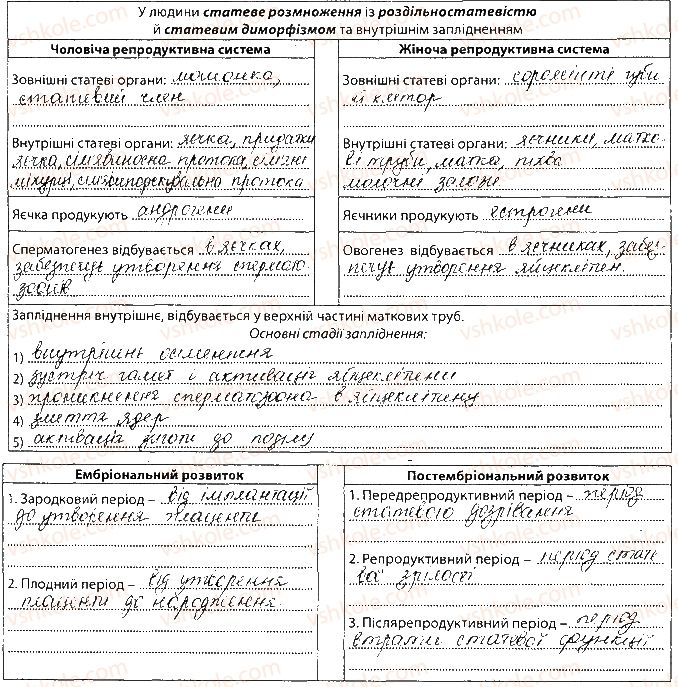 У людини статеве розмноження із роздільностатевістю
й статевим диморфізмом та внутрішнім заплідненням
Чоловіча репродуктивна система
Зовнішні статеві органи: мошонка,
статевий член
Внутрішні статеві органи: яєчка, придатки
яєчка, сім'явиносна протока, сім'яні
міхурці, сім'явипорскувальна протока
Яєчка продукують андрогени
Сперматогенез відбувається в яєчках,
забезпечує утворення спермато-
зоїдів
Жіноча репродуктивна система
Зовнішні статеві органи: соромітні губи
й клітор
Внутрішні статеві органи: яєчники, матко-
ві труби, матка, піхва
молочні залози
Яєчники продукують естрогени
Овогенез відбувається в яєчниках, забез-
печує утворення яйцеклітин
Запліднення внутрішнє, відбувається у верхній частині маткових труб.
Основні стадії запліднення:
1) внутрішнє осіменіння
2) зустріч гамет і активація яйцеклітини
3) проникнення сперматозоона в яйцеклітину
4) злиття ядер
5) активація зиготи до поділу
Ембріональний розвиток
1. Зародковий період – від імплантації
до утворення плаценти
2. Плодний період – від утворення
плаценти до народження
Постембріональний розвиток
1. Передрепродуктивний період – період
статевого дозрівання
2. Репродуктивний період – період стате-
вої зрілості
3. Післярепродуктивний період – період
втрати статевої функції
vshkole.com